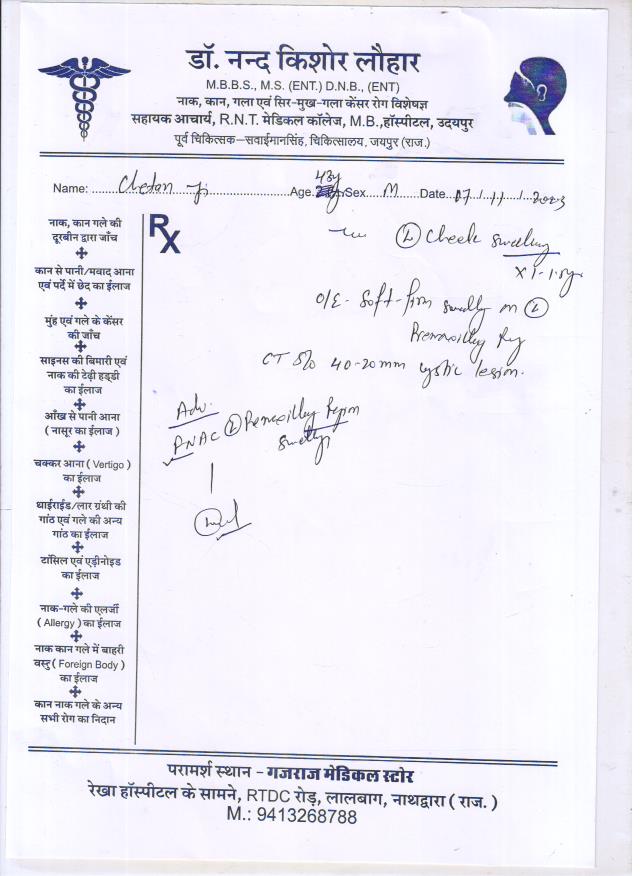 डॉ. नन्द किशोर लौहार
M.B.B.S., M.S. (ENT.) D.N.B., (ENT)
नाक, कान, गला एवं सिर-मुख-गला कैंसर रोग विशेषज्ञ
सहायक आचार्य, R.N.T. मेडिकल कॉलेज, M.B.,हॉस्पीटल, उदयपुर
पूर्व चिकित्सक–सवाईमानसिंह, चिकित्सालय, जयपुर (राज.)
Name: Chetan ji Age 43y Sex M Date 07/11/2023
Rx
(L) Cheek swelling
O/E - Soft-firm swelly on (L)
Premaxilley Rg
CT S/o 40-20mm cystic lesion.
Adv.
FNAC (L) Premaxilley Region
swelly
नाक, कान गले की
दूरबीन द्वारा जाँच
कान से पानी/मवाद आना
एवं पर्दे में छेद का ईलाज
मुंह एवं गले के कैंसर
की जाँच
साइनस की बिमारी एवं
नाक की टेढ़ी हड्डी
का ईलाज
आँख से पानी आना
(नासूर का ईलाज)
चक्कर आना (Vertigo)
का ईलाज
थाईराईड/लार ग्रंथी की
गांठ एवं गले की अन्य
गांठ का ईलाज
टांसिल एवं एड़ीनोइड
का ईलाज
नाक-गले की एलर्जी
(Allergy) का ईलाज
नाक कान गले में बाहरी
वस्तु (Foreign Body)
का ईलाज
कान नाक गले के अन्य
सभी रोग का निदान
परामर्श स्थान - गजराज मेडिकल स्टोर
रेखा हॉस्पीटल के सामने, RTDC रोड़, लालबाग, नाथद्वारा (राज.)
M.: 9413268788